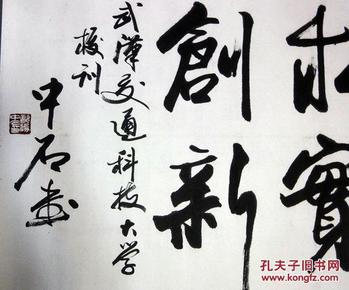 求實
創新
武漢交通科技大学
校刊
中石书
孔夫子旧书网